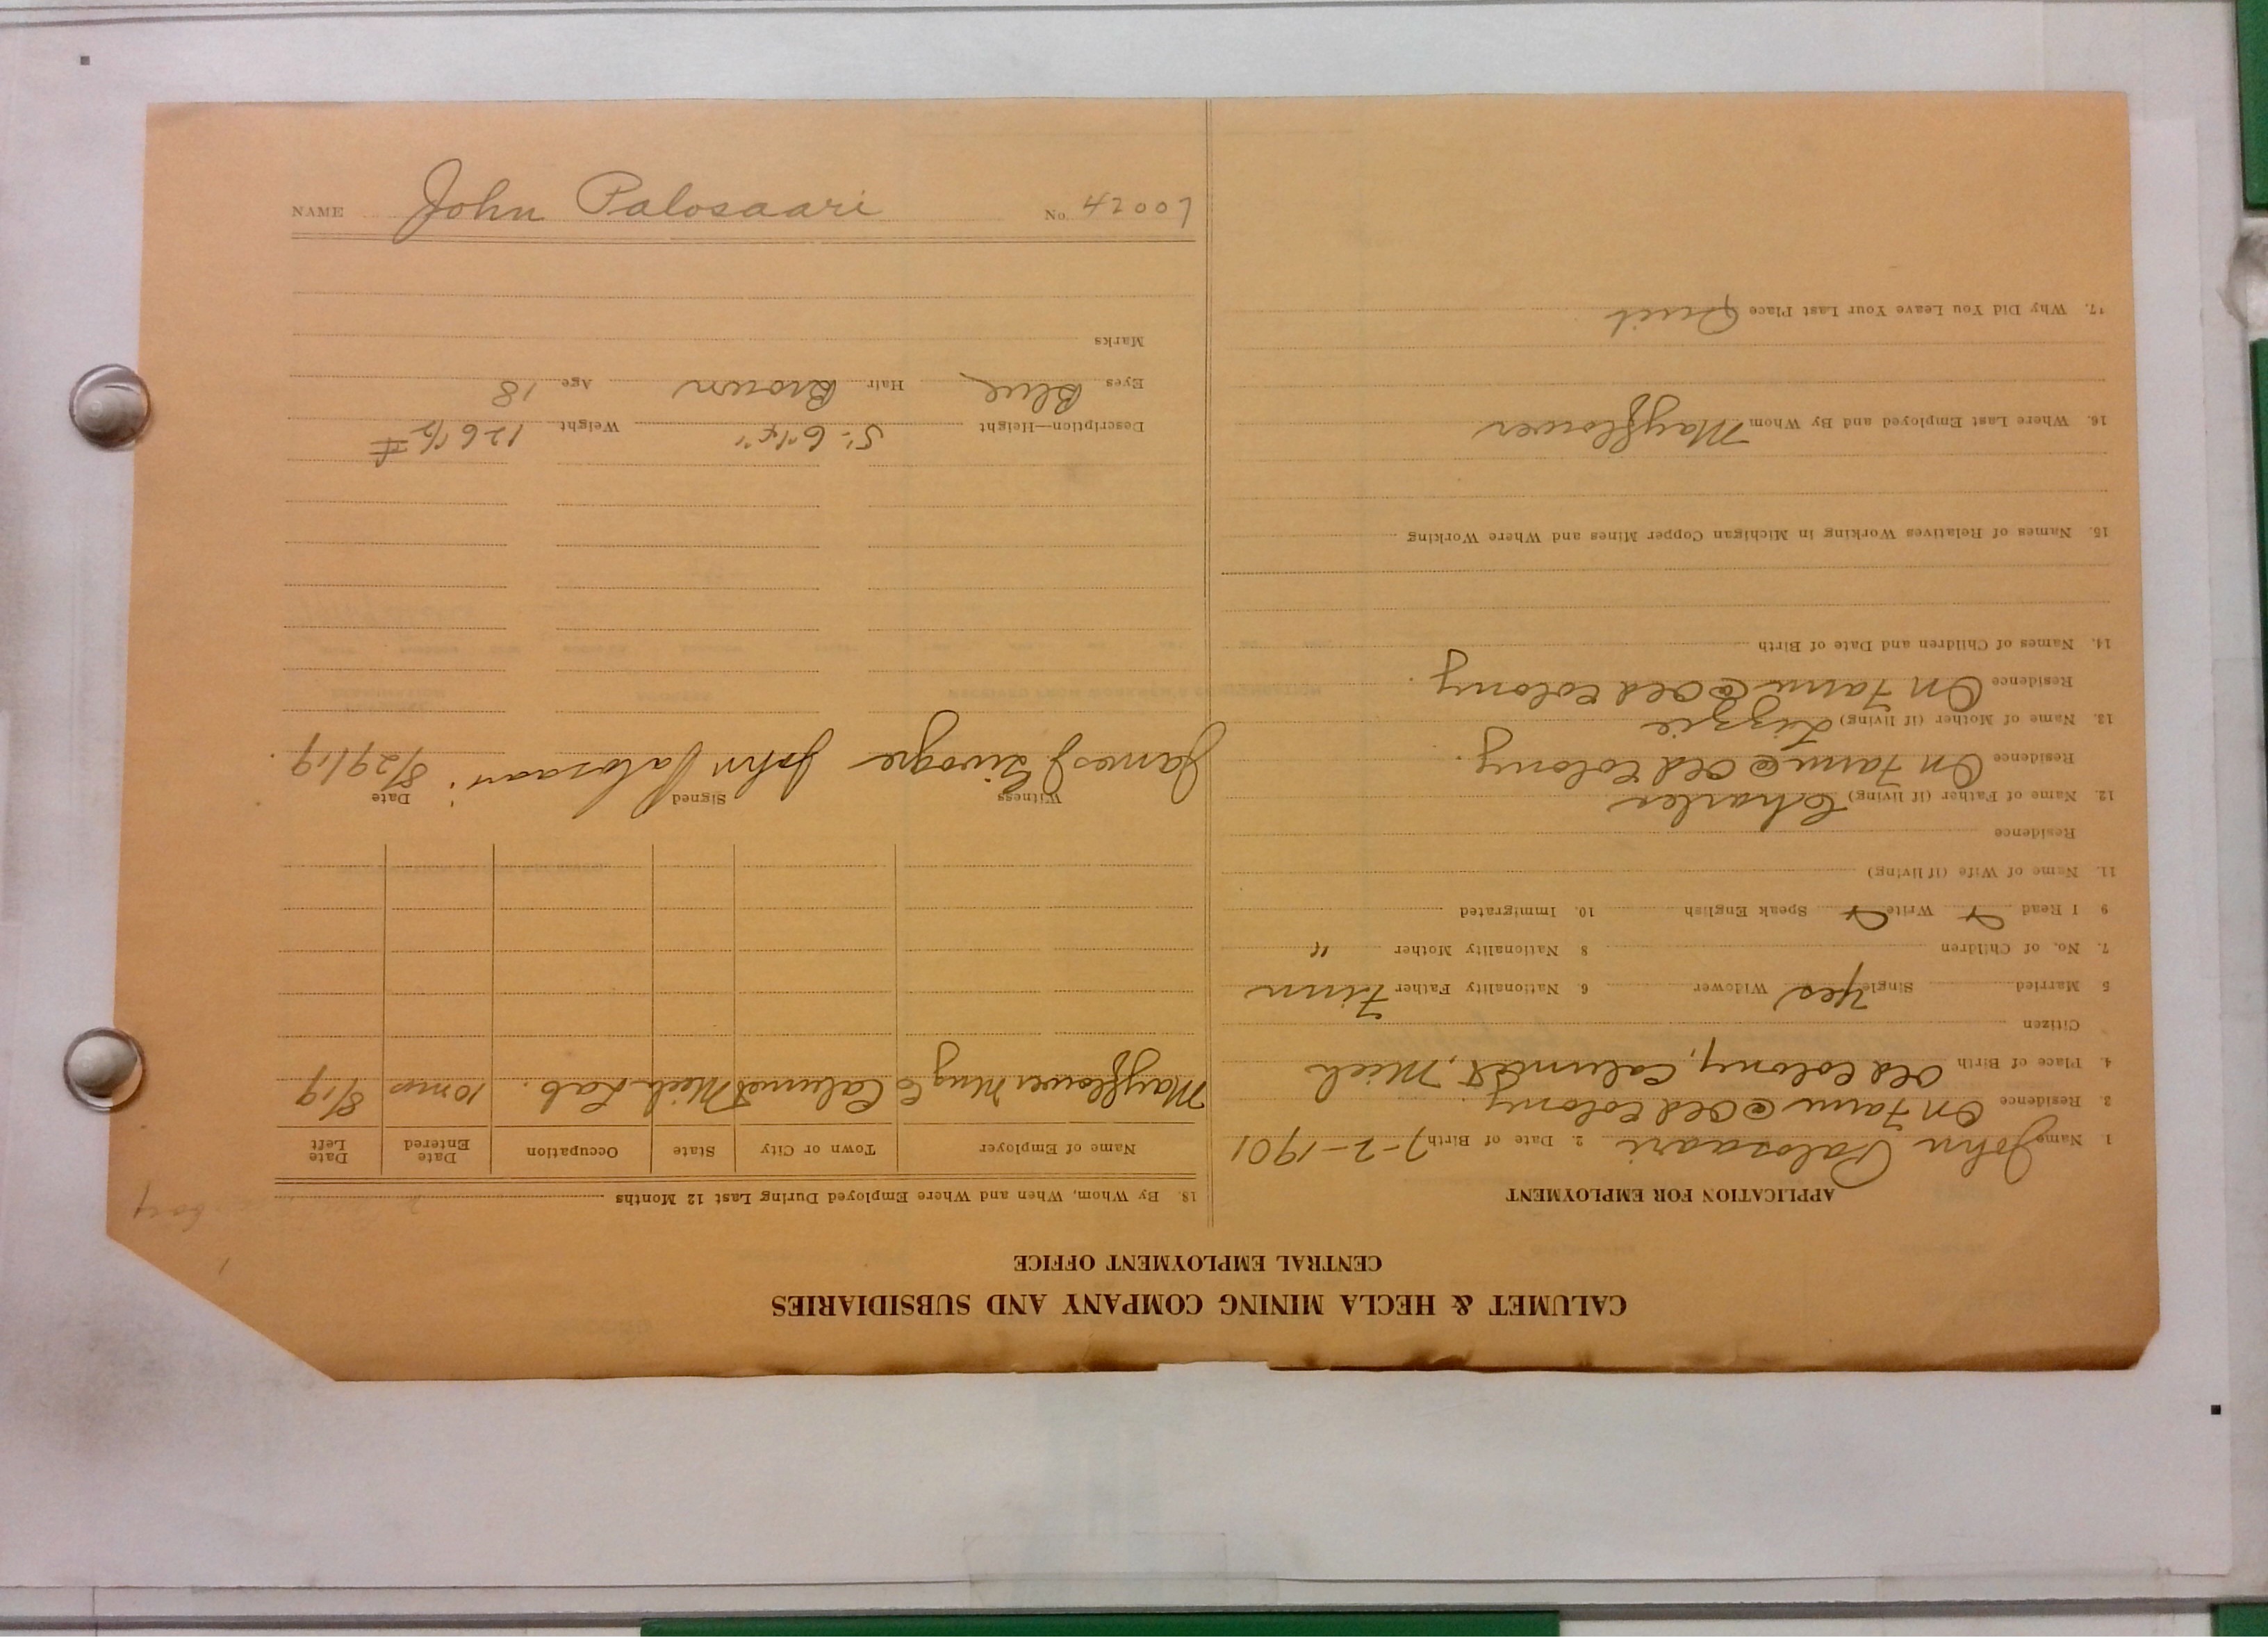 CALUMET & HECLA MINING COMPANY AND SUBSIDIARIES
CENTRAL EMPLOYMENT OFFICE
APPLICATION FOR EMPLOYMENT
1 Name John Palosaari 2. Date of Birth 7-2-1901
3. Residence On Farm @ Old Colony
4. Place of Birth Old Colony, Calumet, Mich
Citizen
5 Married Single Yes Widower 6. Nationality Father Finn
7. No. of Children 8 Nationality Mother "
9 I Read Write Speak English 10. Immigrated
11. Name of Wife (if living)
Residence
12. Name of Father (if living) Charles
Residence On Farm @ Old Colony.
13. Name of Mother (if living) Lizzie
Residence On Farm @ Old Colony.
14. Names of Children and Date of Birth
15. Names of Relatives Working in Michigan Copper Mines and Where Working
16. Where Last Employed and By Whom Mayflower
17. Why Did You Leave Your Last Place Quit
18. By Whom, When and Where Employed During Last 12 Months
Name of Employer Town or City State Occupation Date Entered Date Left
Mayflower Mng Co Calumet Mich Lab. 10 mos 8/19
Witness Signed Date
James J John Palosaari 8/29/19.
Description—Height 5' 6 1/4" Weight 126 1/2 #
Eyes Blue Hair Brown Age 18
Marks
NAME John Palosaari No. 42007